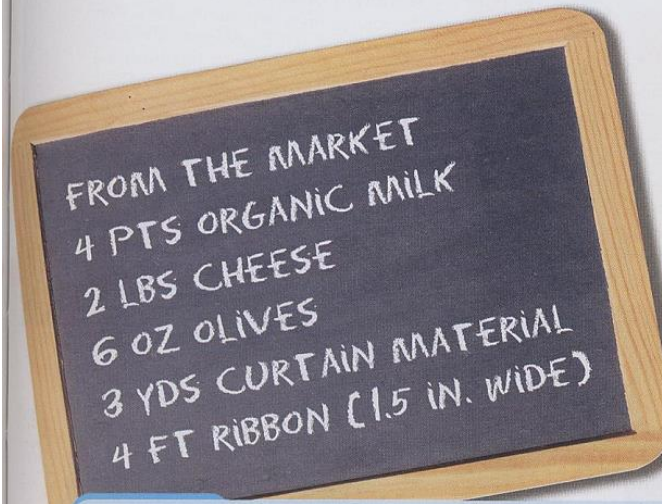 FROM THE MARKET
4 PTS ORGANIC MILK
2 LBS CHEESE
6 OZ OLIVES
3 YDS CURTAIN MATERIAL
4 FT RIBBON (1.5 IN. WIDE)